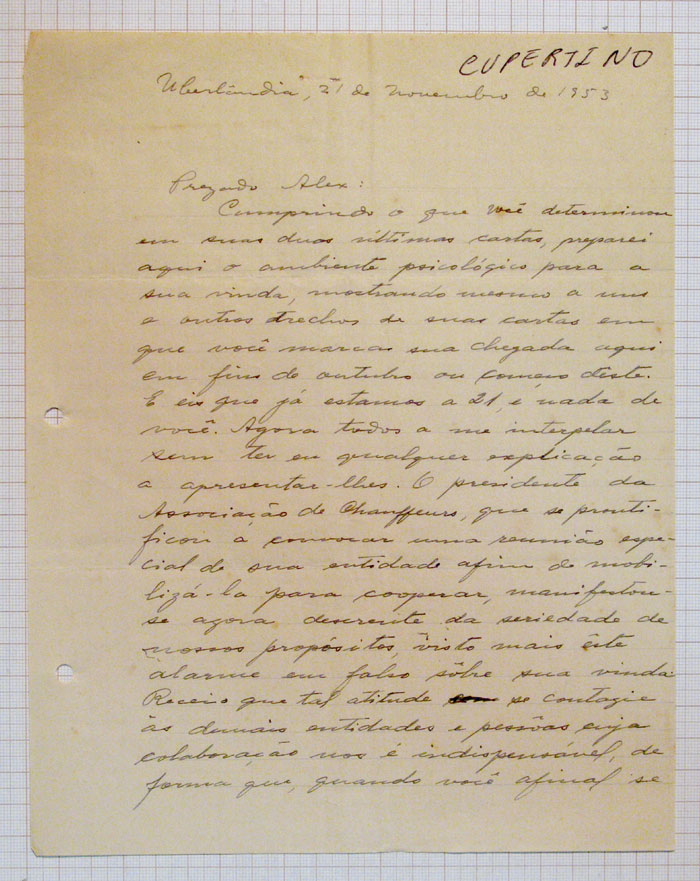 CUPERTINO
Uberlândia, 21 de novembro de 1953
Prezado Alex:
Cumprindo o que você determinou
em suas duas últimas cartas, preparei
aqui o ambiente psicológico para a
sua vinda, mostrando mesmo a uns
e outros trechos de suas cartas em
que você marca sua chegada aqui
em fins de outubro ou começo dêste.
E eis que já estamos a 21, e nada de
você. Agora todos a me interpelar
sem ter eu qualquer explicação
a apresentar-lhes. O presidente da
Associação de Chauffeurs, que se pronti-
ficou a convocar uma reunião espe-
cial de sua entidade afim de mobi-
lizá-la para cooperar, manifestou-
se agora descrente da seriedade de
nossos propósitos, visto mais êste
alarme em falso sôbre sua vinda.
Receio que tal atitude se contagie
às demais entidades e pessôas cuja
colaboração nos é indispensável, de
forma que, quando você afinal se